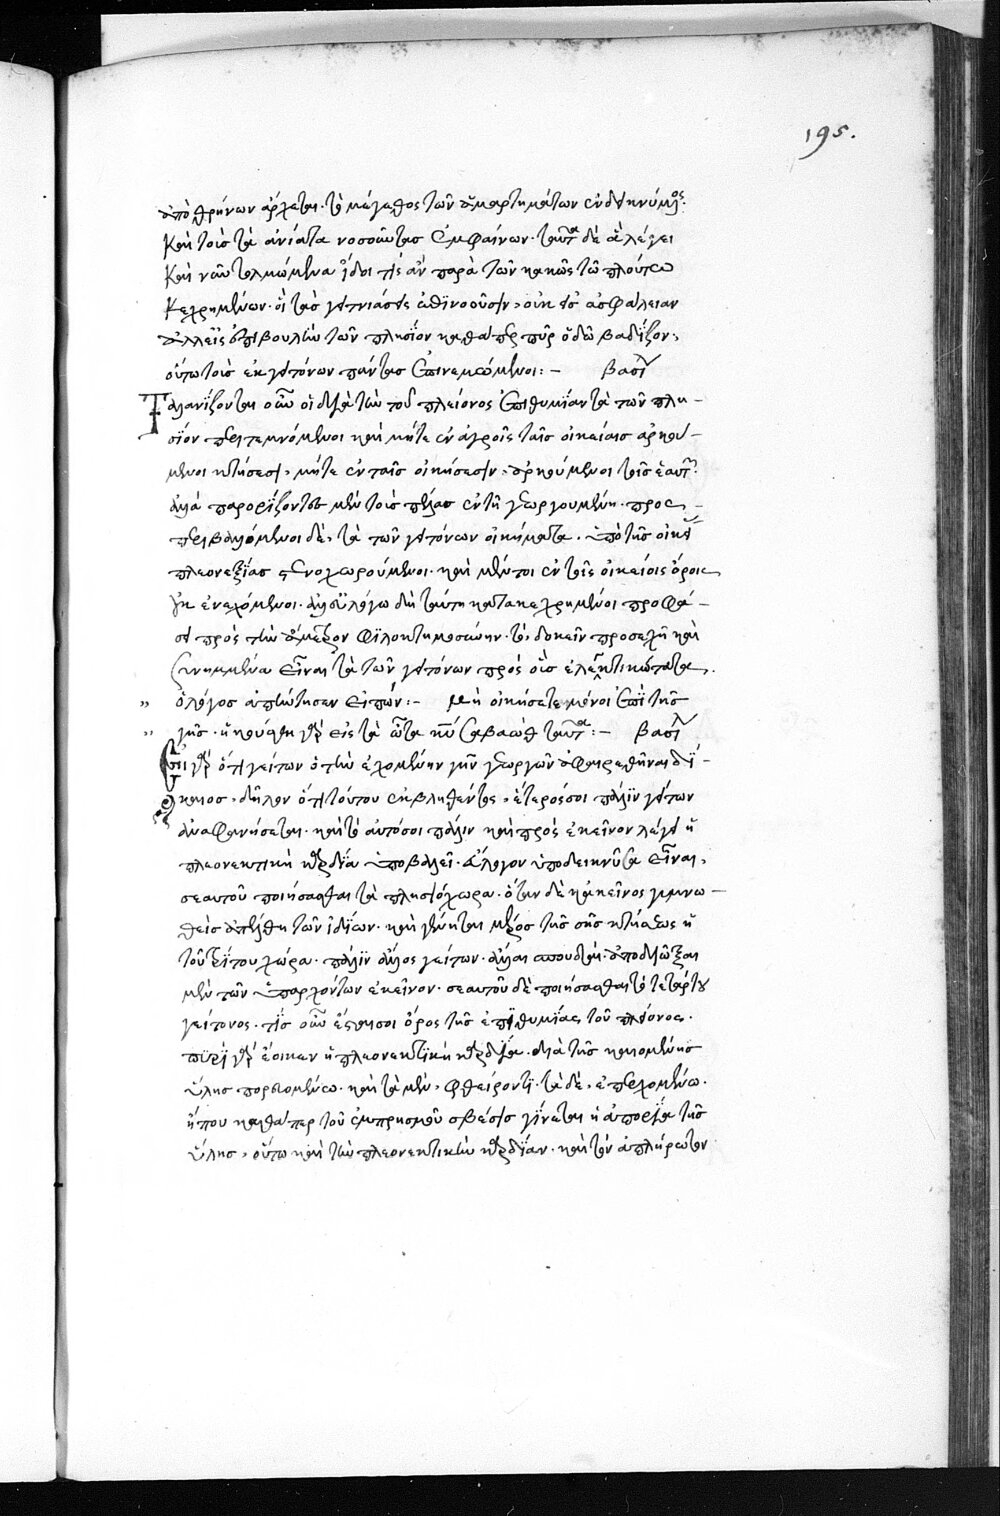 195.
ἀπὸ θρήνων ἄρχεται· τὸ μέγεθος τῶν ἁμαρτημάτων ἐνδεικνύμενος·
καὶ τοὺς τὰ ἀνίατα νοσοῦντας ἐμφαίνων· ταῦτα δὲ ἃ λέγει
καὶ νῦν τολμώμενα ἴδοι τίς ἂν παρὰ τῶν κακῶς τῶ πλούτω
κεχρημένων· οἱ τὰς γειτνιάσεις οὐκ εἰς ἀσφάλειαν
ἀλλ' εἰς ἐπιβουλὴν τῶν πλησίον καθάπερ πῦρ ὁδῶ βαδίζον,
οὕτω τοὺς ἐκ γειτόνων πάντας ἐπινεμόμενοι:– βασιλ
Ταλανίζονται οὖν οἱ διὰ τὴν τοῦ πλείονος ἐπιθυμίαν τὰ τῶν πλη–
σίον περιτεμνόμενοι καὶ μήτε ἐν ἀγροῖς ταῖς οἰκείαις ἀρκού–
μενοι κτήσεσι, μήτε ἐν ταῖς οἰκήσεσιν, ἀρκούμενοι τοῖς ἑαυτῶν·
ἀλλὰ παρορίζοντες μὲν τοὺς πέλας ἐν τῆ γεωργουμένη· προς–
περιβαλλόμενοι δὲ, τὰ τῶν γειτόνων οἰκήματα. ὑπὸ τῆς οἰκεί
πλεονεξίας στενοχωρούμενοι· καὶ μέντοι ἐν τοῖς οἰκείοις ὅροις
οὐκ ἐνεχόμενοι· ἀλλ' εὐλόγω δὴ ταύτη κατακεχρημένοι προφά–
σει πρὸς τὴν ἄμετρον φιλοκτημοσύνην· τὸ δοκεῖν προσεχῆ καὶ
συνημμένα εἶναι τὰ τῶν γειτόνων πρὸς οὓς ἐλεγκτικώτατα
ὁ λόγος ἀπήντησεν εἰπών:– μὴ οἰκήσετε μόνοι ἐπὶ τῆς
γῆς· ἠκούσθη γὰρ εἰς τὰ ὦτα κυ σαβαὼθ ταῦτα:– βασιλ
Εἰ γὰρ ὅτι γείτων ὁ τὴν ἐχομένην γῆν γεωργῶν ἀφαιρεθῆναι δί–
καιος, δῆλον ὅτι τούτου ἐκβληθέντος, ἕτερός σοι πάλιν γείτων
ἀναφανήσεται· καὶ τὸ αὐτό σοι πάλιν καὶ πρὸς ἐκεῖνον λέγει ἡ
πλεονεκτικὴ καρδία ὑποβαλεῖ· ἄλογον ὑποδεικνῦσα εἶναι,
σεαυτοῦ ποιήσασθαι τὰ πλησιόχωρα· ὅταν δὲ κἀκεῖνος γυμνω–
θεὶς ἀπέλθη τῶν ἰδίων· καὶ γένηται μέρος τῆς σῆς κτήσεως ἡ
τοῦ τρίτου χώρα· πάλιν ἄλλος γείτων· ἄλλαι σπουδαί· ἀποδιῶξαι
μὲν τῶν ὑπαρχόντων ἐκεῖνον· σεαυτοῦ δὲ ποιήσασθαι τὸ τετάρτου
γείτονος· τίς οὖν ἔσται σοι ὅρος τῆς ἐπιθυμίας τοῦ πλείονος·
πυρὶ γὰρ ἔοικεν ἡ πλεονεκτικὴ καρδία· διὰ τῆς καιομένης
ὕλης πορευομένω· καὶ τὰ μὲν, φθείροντι· τὰ δὲ, ἐπερχομένω·
ἥπου καθάπερ τοῦ ἐμπρησμοῦ σβέσις γίνεται ἡ ἀπορία τῆς
ὕλης, οὕτω καὶ τὴν πλεονεκτικὴν καρδίαν· καὶ τὸν ἀπλήρωτον